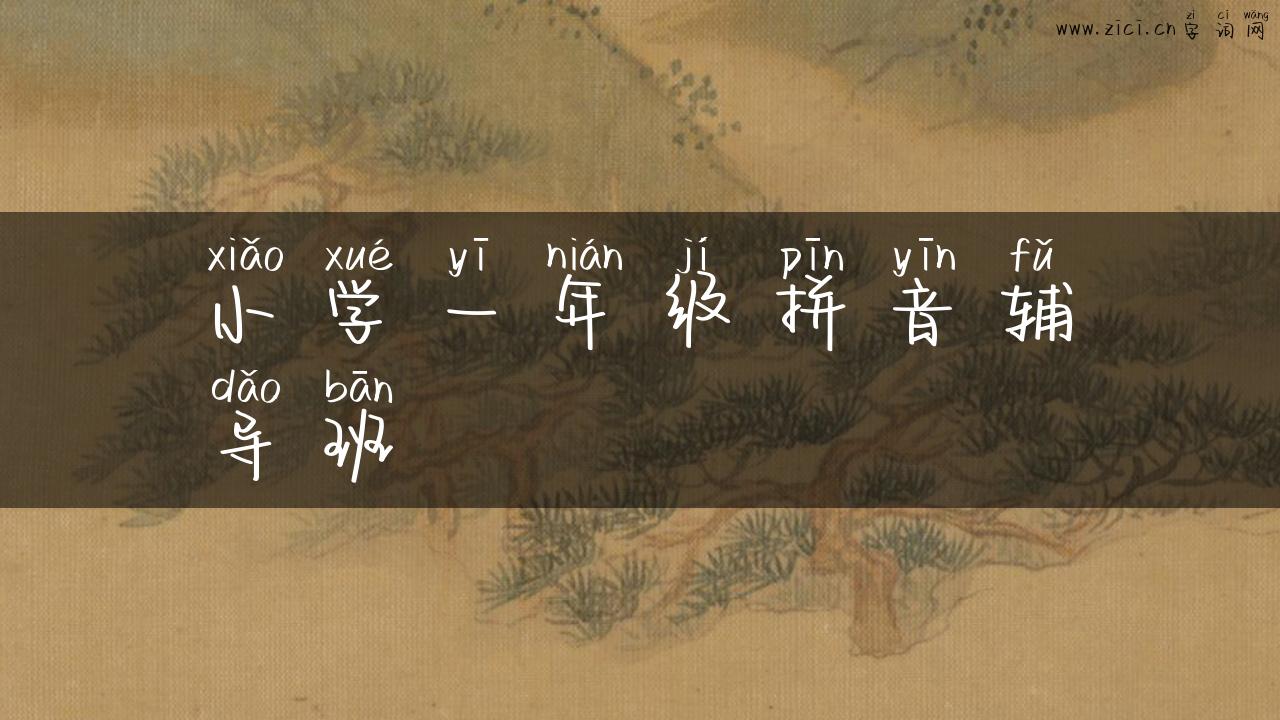 zì cí wǎng
www.zici.cn 字词网
xiǎo xué yī nián jí pīn yīn fǔ
小学一年级拼音辅
dǎo bān
导班